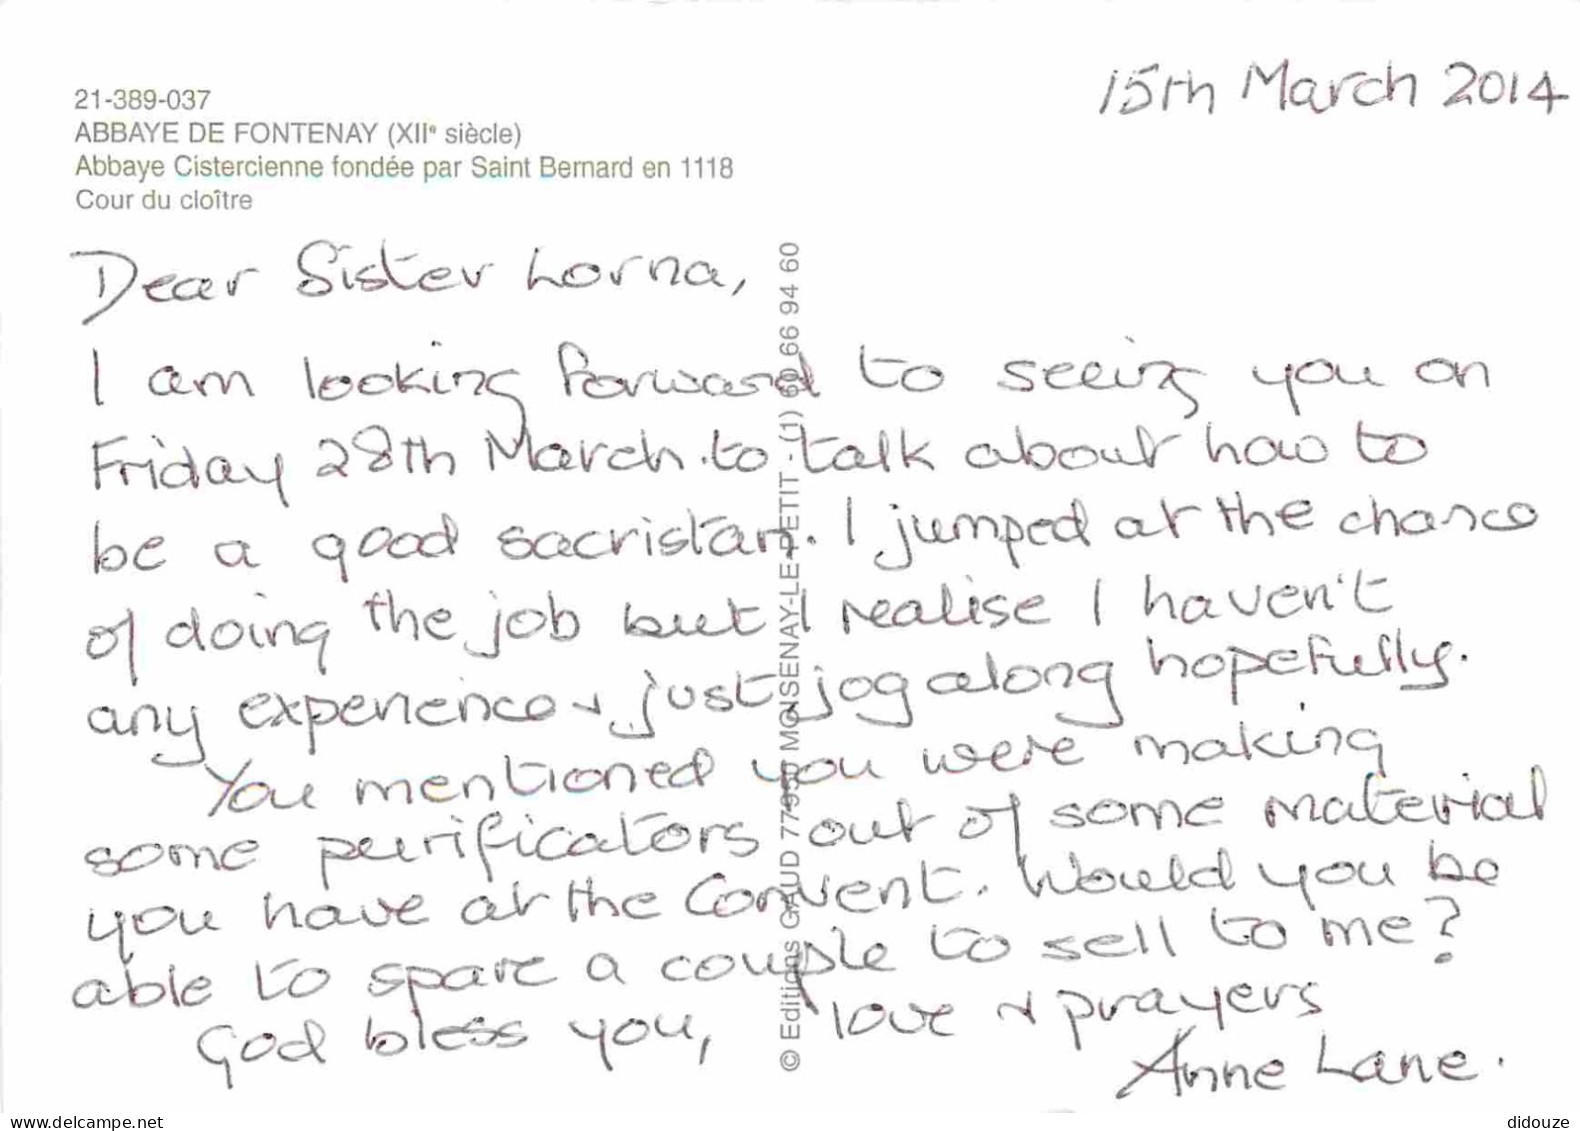 15th March 2014
21-389-037
ABBAYE DE FONTENAY (XIIe siècle)
Abbaye Cistercienne fondée par Saint Bernard en 1118
Cour du cloître
Dear Sister Lorna,
I am looking forward to seeing you on
Friday 28th March. to talk about how to
be a good sacristan. I jumped at the chance
of doing the job but I realise I haven't
any experience & just jog along hopefully.
You mentioned you were making
some purificators out of some material
you have at the Convent. Would you be
able to spare a couple to sell to me?
God bless you, love & prayers
Anne Lane.
© Editions GAUD 77950 MOISENAY-LE-PETIT - (1) 60 66 94 60
delcampe.net
didouze